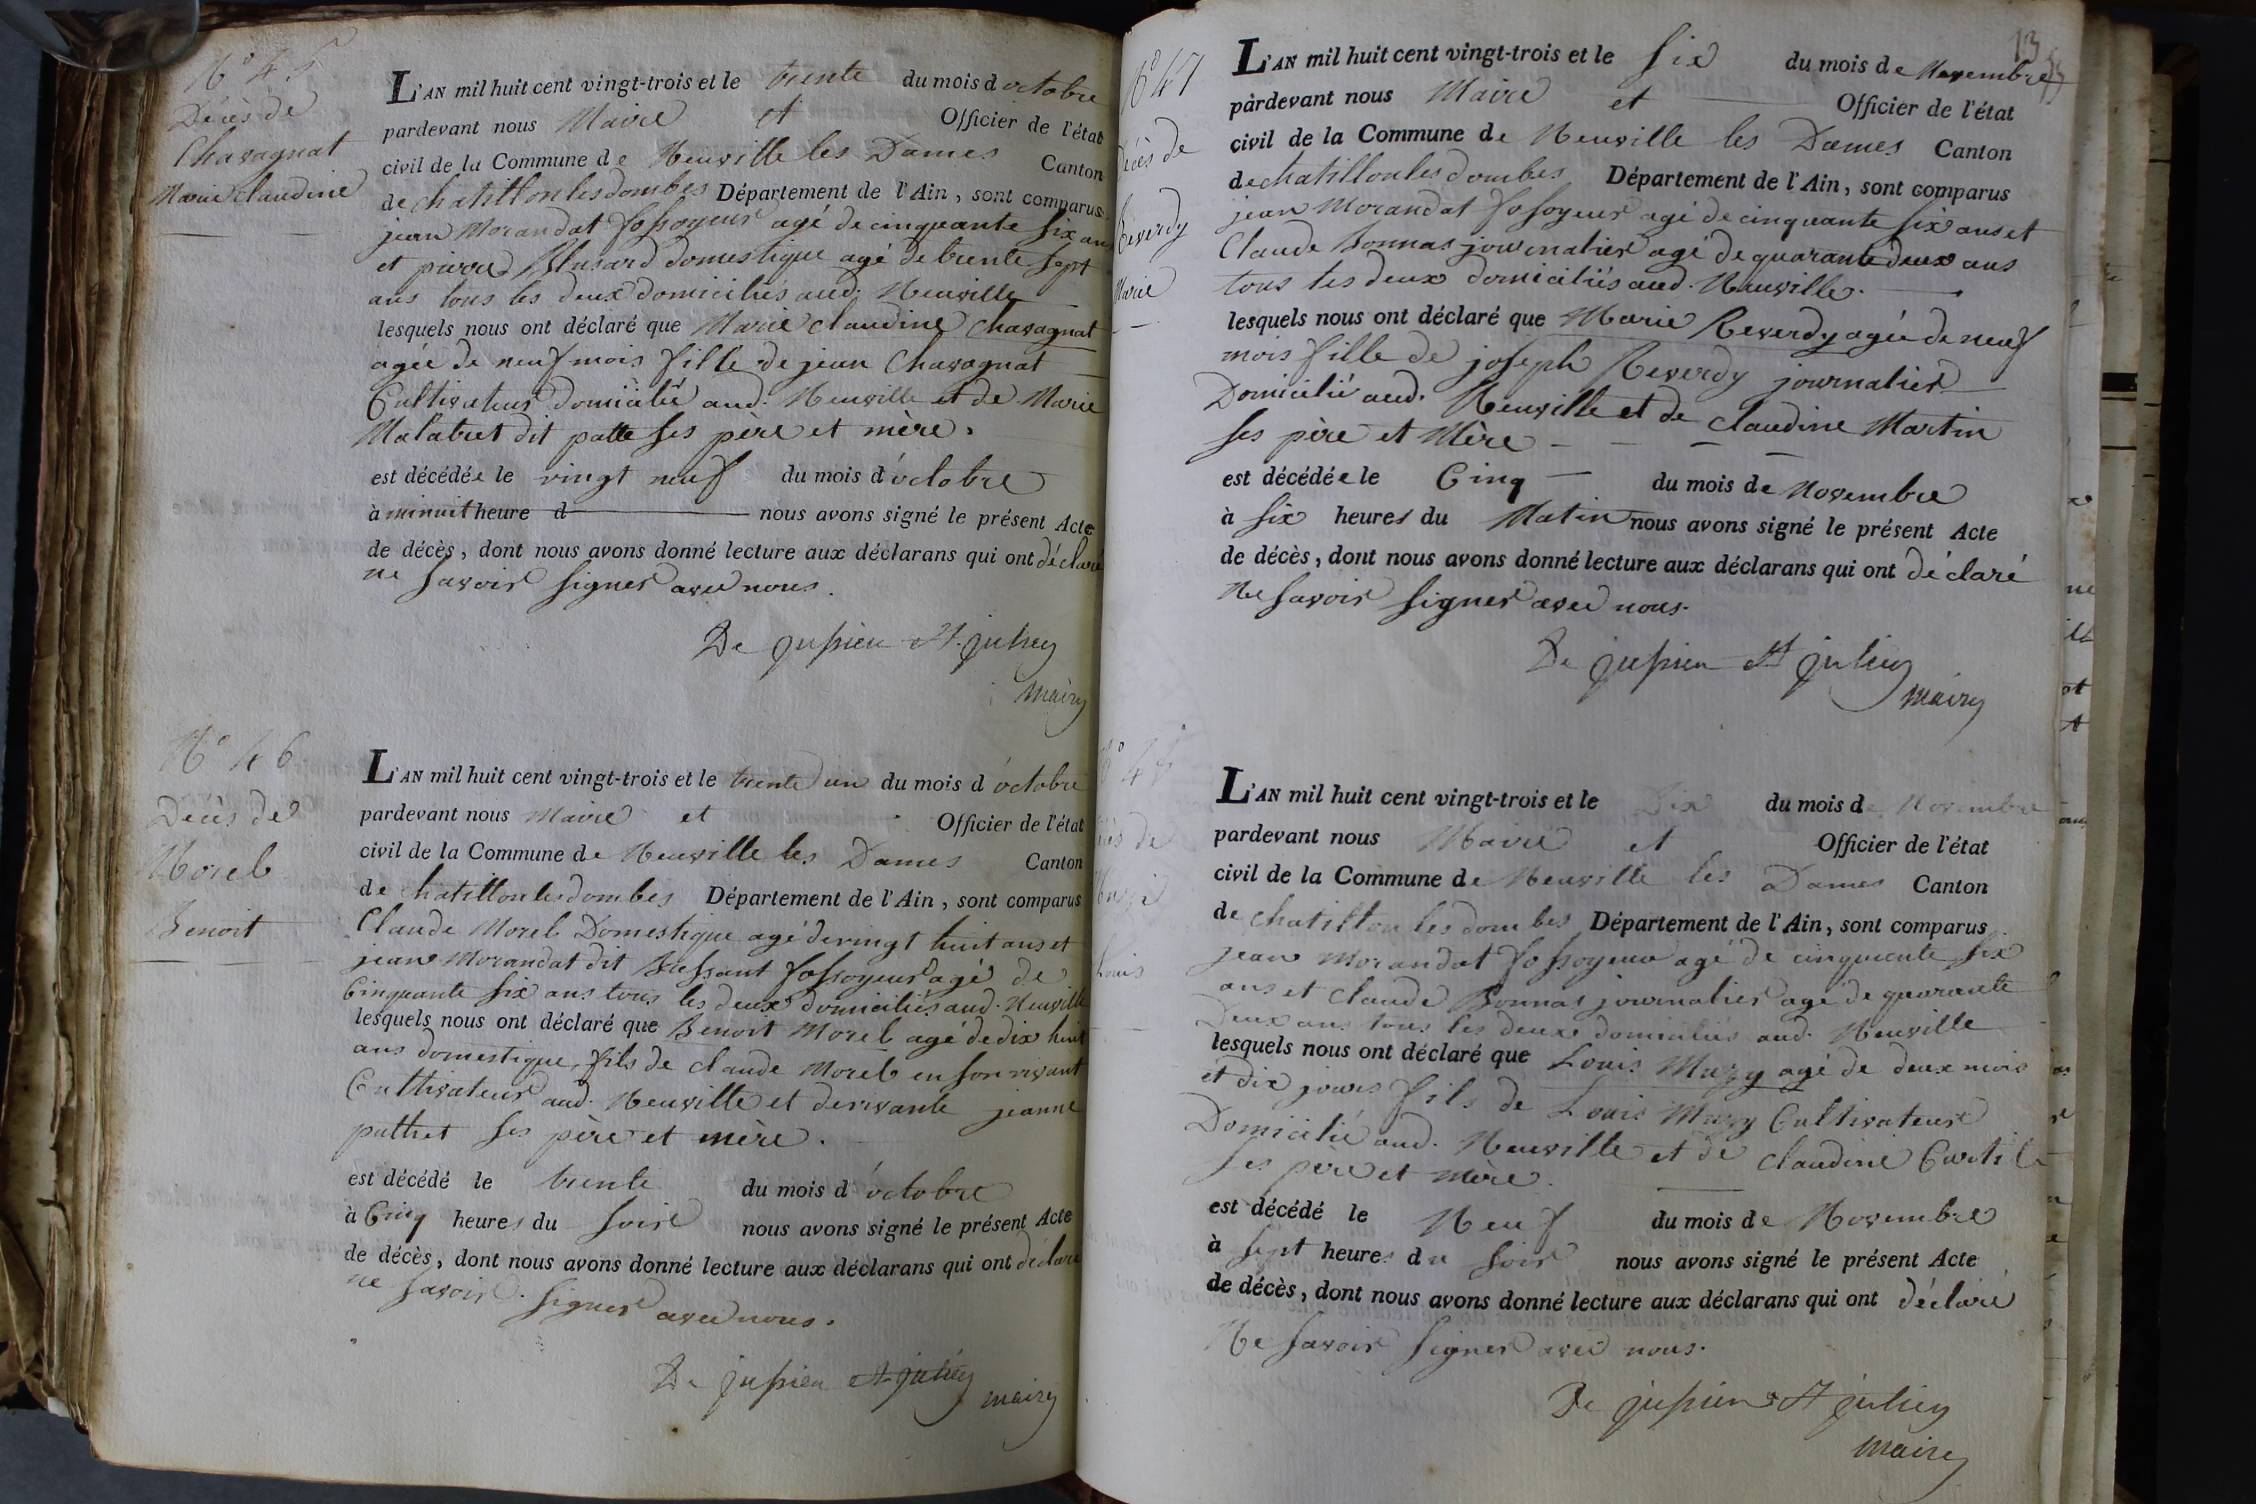 N° 45
Décès de
Chavagnat
Marie Claudine
L'AN mil huit cent vingt-trois et le trente du mois d octobre
pardevant nous Maire et Officier de l'état
civil de la Commune de Neuville les Dames Canton
de chatillon les dombes Département de l'Ain, sont comparus
jean Morandat fossoyeur agé de cinquante six ans
et pierre Blusard domestique agé de trente sept
ans tous les deux domiciliés aud. Neuville
lesquels nous ont déclaré que Marie Claudine Chavagnat
agée de neuf mois fille de jean Chavagnat
Cultivateur domicilié aud. Neuville et de Marie
Malatret dit patte ses père et mère.
est décédée le vingt neuf du mois d'octobre
à minuit heure d nous avons signé le présent Acte
de décès, dont nous avons donné lecture aux déclarans qui ont déclaré
ne savoir signer avec nous.
De jussieu St. julien
maire
N° 46
Décès de
Morel
Benoit
L'AN mil huit cent vingt-trois et le trente un du mois d'octobre
pardevant nous Maire et Officier de l'état
civil de la Commune de Neuville les Dames Canton
de chatillon les dombes Département de l'Ain, sont comparus
Claude Morel Domestique agé de vingt huit ans et
jean Morandat dit Bressant fossoyeur agé de
Cinquante six ans tous les deux domiciliés aud. Neuville
lesquels nous ont déclaré que Benoit Morel agé de dix huit
ans domestique, fils de claude Morel en son vivant
Cultivateur aud. Neuville et de vivante jeanne
puthet ses père et mère.
est décédé le trente du mois d'octobre
à Cinq heures du soir nous avons signé le présent Acte
de décès, dont nous avons donné lecture aux déclarans qui ont déclaré
ne savoir signer avec nous.
De jussieu St julien
maire
N° 47
Décès de
Reverdy
Marie
L'AN mil huit cent vingt-trois et le six du mois de Novembre
pardevant nous Maire et Officier de l'état
civil de la Commune de Neuville les Dames Canton
de chatillon les dombes Département de l'Ain, sont comparus
jean Morandat fossoyeur agé de cinquante six ans et
Claude Bonnas journalier agé de quarante deux ans
tous les deux domiciliés aud. Neuville.
lesquels nous ont déclaré que Marie Reverdy agée de neuf
mois fille de joseph Reverdy journalier
Domicilié aud. Neuville et de claudine Martin
ses père et Mère
est décédée le Cinq du mois de Novembre
à six heures du Matin nous avons signé le présent Acte
de décès, dont nous avons donné lecture aux déclarans qui ont déclaré
Ne savoir signer avec nous.
De jussieu St julien
maire
N° 48
Décès de
Louis
L'AN mil huit cent vingt-trois et le Dix du mois de Novembre
pardevant nous Maire et Officier de l'état
civil de la Commune de Neuville les Dames Canton
de chatillon les dombes Département de l'Ain, sont comparus
jean Morandat fossoyeur agé de cinquante six
ans et claude Bonnas journalier agé de quarante
Deux ans tous les deux domiciliés aud. Neuville
lesquels nous ont déclaré que Louis Muzy agé de deux mois
et dix jours fils de Louis Muzy Cultivateur
Domicilié aud. Neuville et de claudine
ses père et mère.
est décédé le Neuf du mois de Novembre
à sept heures du soir nous avons signé le présent Acte
de décès, dont nous avons donné lecture aux déclarans qui ont déclaré
Ne savoir signer avec nous.
De jussieu St julien
maire